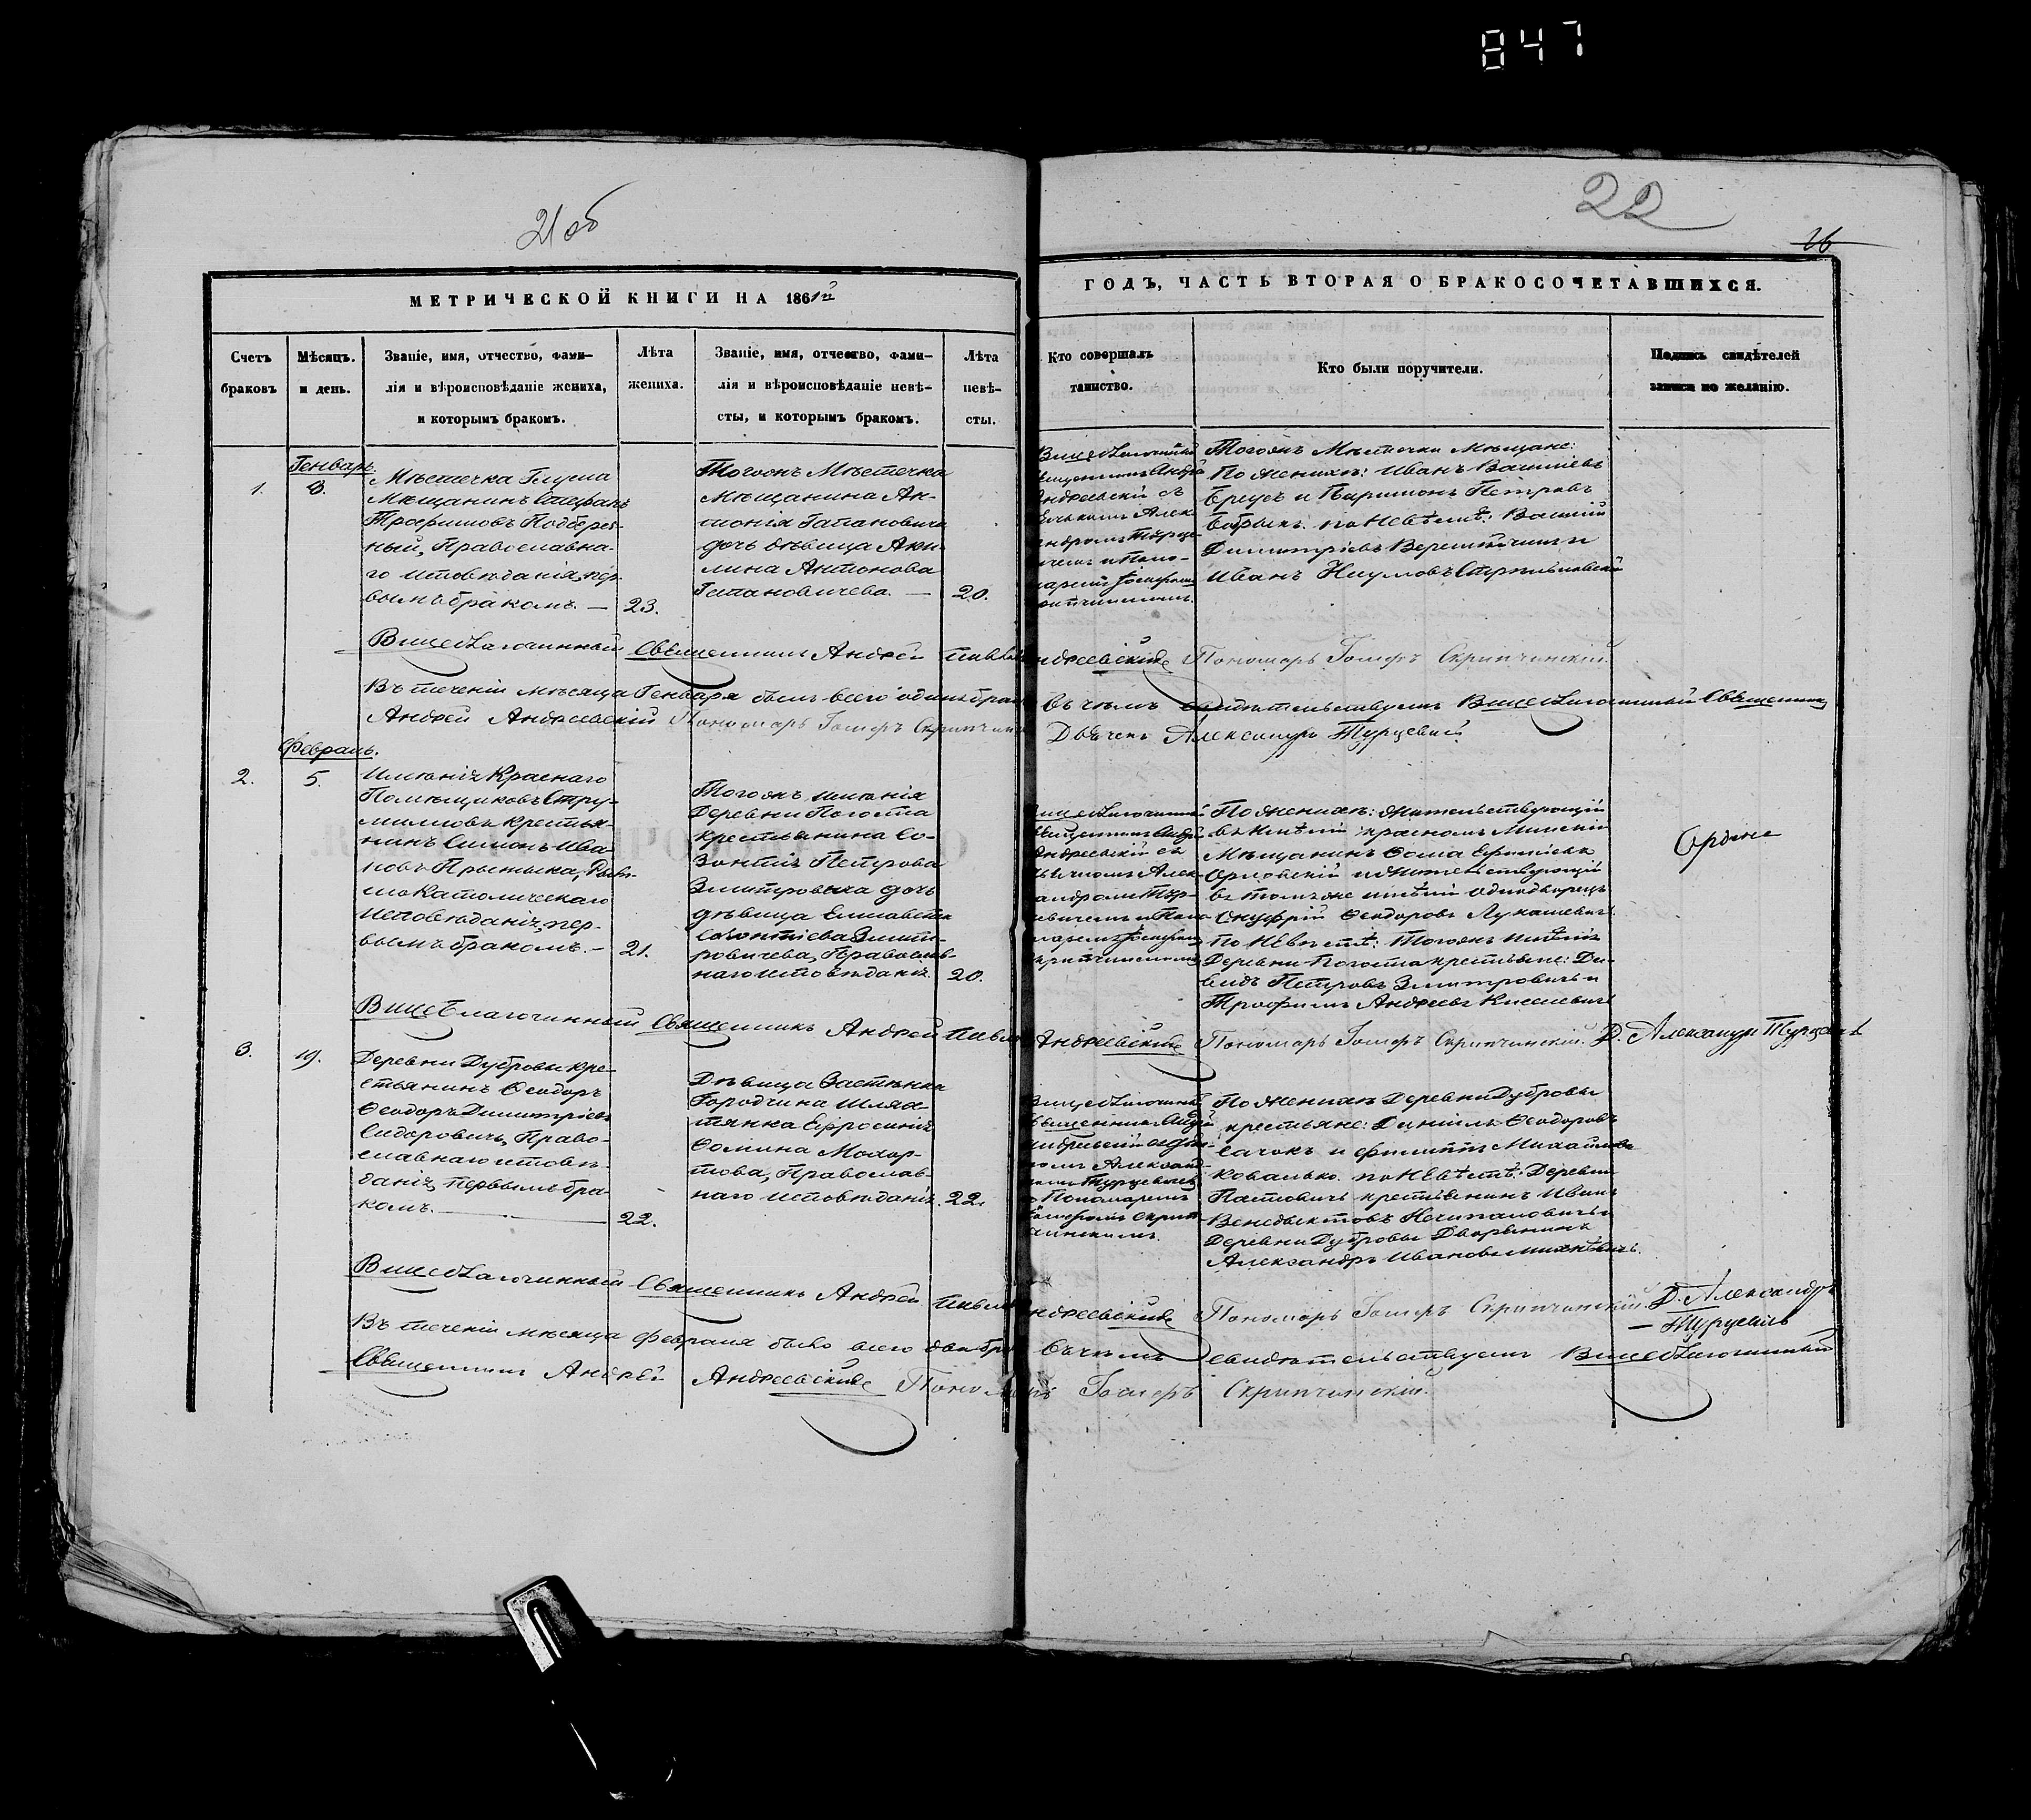 847
21 об
22
26
МЕТРИЧЕСКОЙ КНИГИ НА 1861й
ГОДЪ, ЧАСТЬ ВТОРАЯ О БРАКОСОЧЕТАВШИХСЯ.
Счетъ
браковъ
Мѣсяцъ.
и день.
Званіе, имя, отчество, фами-
лія и вѣроисповѣданіе жениха,
и которымъ бракомъ.
Лѣта
жениха.
Званіе, имя, отчество, фами-
лія и вѣроисповѣданіе невѣ-
сты, и которымъ бракомъ.
Лѣта
невѣ-
сты.
Кто совершалъ
таинство.
Кто были поручители.
Подпись свидѣтелей
записи по желанію.
1.
Генварь.
8.
Мѣстечка Глуска
Мѣщанинъ Стефанъ
Трофимовъ Подберез-
ный, Православна-
го исповѣданія, пер-
вымъ бракомъ. —
23.
Тогожъ Мѣстечка
Мѣщанина Ан-
тонія Гапановича
дочь дѣвица Аки-
лина Антонова
Гапановичева. —
20.
Вицеблагочинный
Священникъ Андрей
Андреевскій съ
Дьячкомъ Алек-
Тогожъ Мѣстечка Мѣщане:
По женихѣ: Иванъ Василіевъ
и Петровъ
по Невѣстѣ: Василій
Димитріевъ и
Иванъ Наумовъ
Вицеблагочинный Священникъ Андрей Андреевскій Пономарь Іосифъ Скрипчинскій.
Въ теченіи мѣсяца Генваря былъ всего одинъ бракъ Въ чемъ свидѣтельствуемъ Вицеблагочинный Священникъ
Андрей Андреевскій Пономарь Іосифъ Дьячекъ Александръ Турцевичъ
Февраль.
2.
5.
Имѣнія Краснаго
Помѣщиковъ Стру-
милловъ крестья-
нинъ Симонъ Ива-
новъ Римо-
Католическаго
Исповѣданія, пер-
вымъ бракомъ. —
21.
Тогожъ имѣнія
Деревни Погоста
крестьянина Со-
зонтія Петрова
Змитровича дочь
дѣвица Елисавета
Созонтіева Змит-
ровичева, Православ-
наго исповѣданія.
20.
Вицеблагочинный
Священникъ Андрей
Андреевскій съ
Дьячкомъ Алек-
По женихѣ: жительствующій
въ имѣніи Красномъ Минскій
Мѣщанинъ Ѳома
Орловскій и жительствующій
въ томъ же имѣніи однодворецъ
Онуфрій Ѳеодоровъ Лукашевичъ
По Невѣстѣ: Тогожъ имѣнія
Деревни Погоста крестьяне: Да-
видъ Петровъ Змитровичъ и
Трофимъ Андреевъ Киселевичъ
Вицеблагочинный Священникъ Андрей Андреевскій Пономарь Іосифъ Скрипчинскій. Д. Александръ Турцевичъ
3.
19.
Деревни Дубровы кре-
стьянинъ Ѳеодоръ
Ѳеодоръ Димитріевъ
Сидоровичъ, Право-
славнаго исповѣ-
данія, первымъ бра-
комъ.
22.
Дѣвица Застѣнка
Городчина шлях-
тянка Ефросинія
Ѳомина Мохор-
това, Православ-
наго исповѣданія.
22.
По женихѣ Деревни Дубровы
крестьяне: Даніилъ Ѳеодоровъ
и Филиппъ Михайловъ
Ковалько. по Невѣстѣ: Деревни
крестьянинъ Иванъ
Венедыктовъ и
Деревни Дубровы Дворянинъ
Александръ Ивановъ
Вицеблагочинный Священникъ Андрей Андреевскій Пономарь Іосифъ Скрипчинскій. Д. Александръ
Турцевичъ
Въ теченіи мѣсяца Февраля было всего два Въ чемъ свидѣтельствуемъ Вицеблагочинный
Священникъ Андрей Андреевскій Пономарь Іосифъ Скрипчинскій.